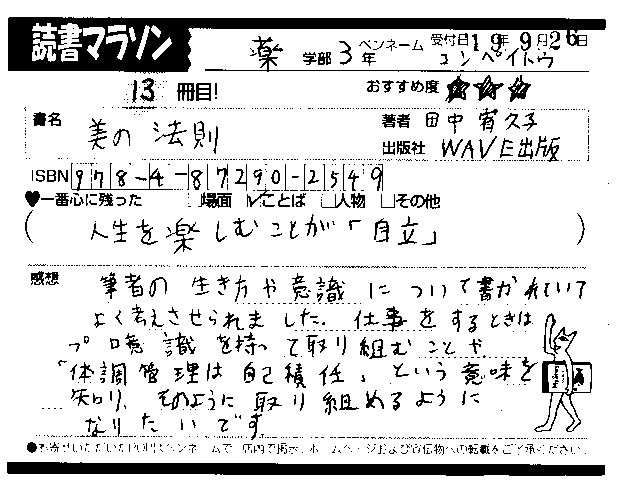 読書マラソン 薬学部3年 ペンネーム コンペイトウ 受付日19年9月26日
13冊目! おすすめ度 ★★★
書名 美の法則 著者 田中宥久子
出版社 WAVE出版
ISBN 978-4-87290-254-9
♥一番心に残った □場面 ☑ことば □人物 □その他
(人生を楽しむことが「自立」)
感想 筆者の生き方や意識について書かれていて
よく考えさせられました。仕事をするときは
プロ意識を持って取り組むことや
「体調管理は自己積任」という意味を
知り、そのように取り組めるように
なりたいです。
●お寄せいただいたPOPはペンネームで、店内で掲示、ホームページおよび宣伝物への転載をご了承ください。